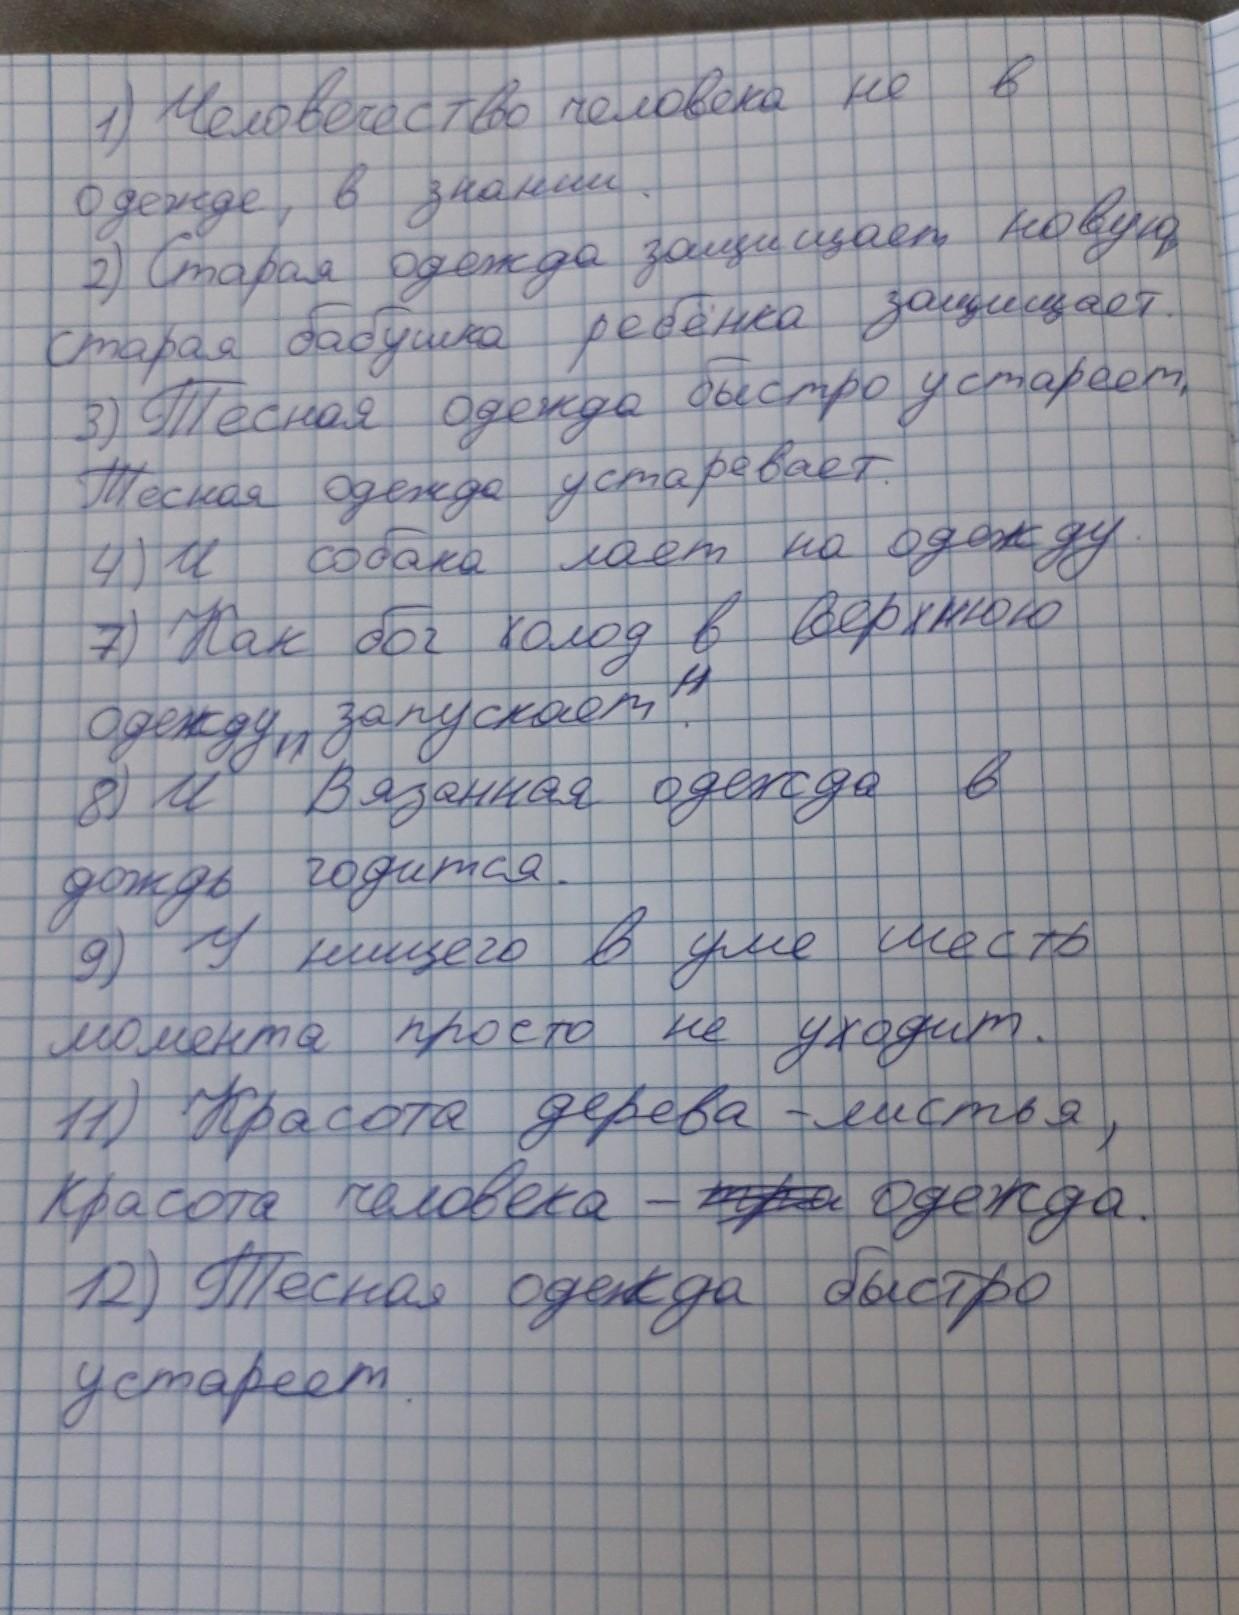 1) Человечество человека не в
одежде, в знании.
2) Старая одежда защищает новую,
старая бабушка ребёнка защищает.
3) Тесная одежда быстро устареет,
Тесная одежда устаревает.
4) И собака лает на одежду.
7) Как бог холод в верхнюю
одежду „запускает".
8) И Вязанная одежда в
дождь годится.
9) У нищего в уме шесть
момента просто не уходит.
11) Красота дерева - листья,
Красота человека - одежда.
12) Тесная одежда быстро
устареет.